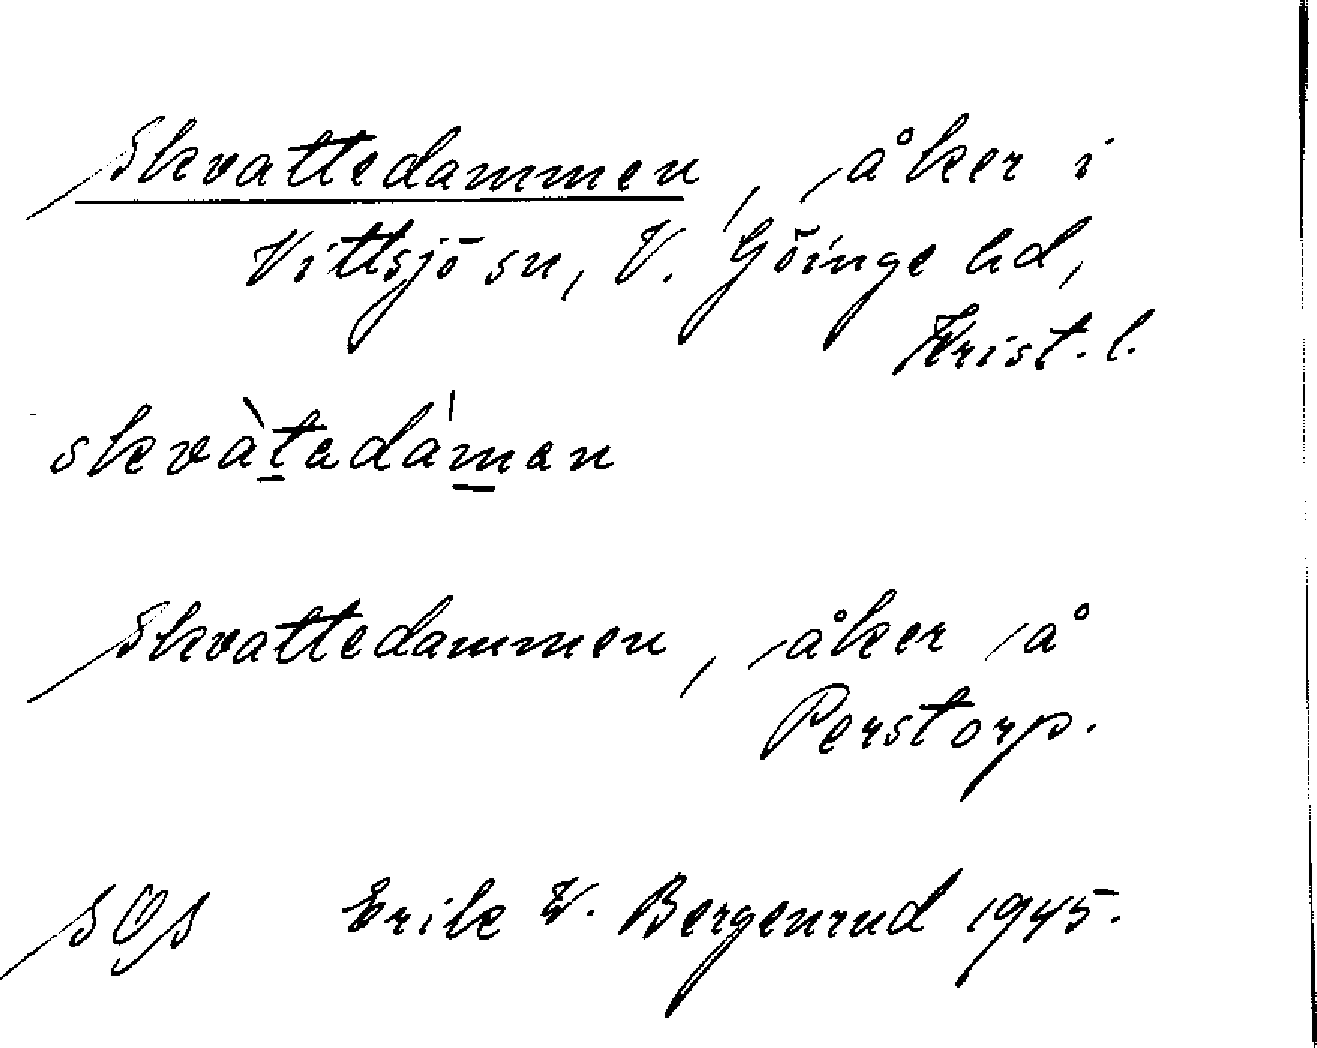 Skvattedammen, åker i
Vittsjö sn, V. Göinge hd,
Krist. l.
skvàtedámen
Skvattedammen, åker å
Perstorp.
SOS Erik W. Bergenrud 1945.